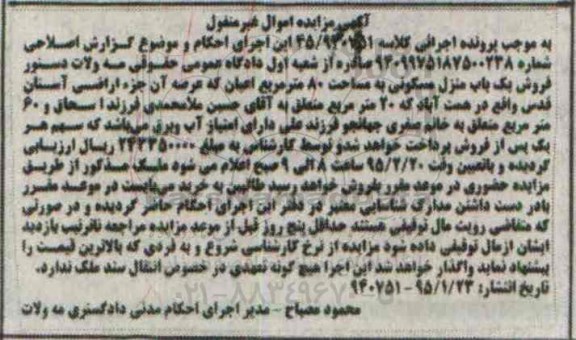 آگهی مزایده اموال غیرمنقول
به موجب پرونده اجرائی کلاسه ۴۵/۹۴۰۲۵۱ این اجرای احکام و موضوع گزارش اصلاحی
شماره ۹۴۰۹۹۷۵۱۸۷۵۰۰۲۳۸ صادره از شعبه اول دادگاه عمومی حقوقی مه ولات دستور
فروش یک باب منزل مسکونی به مساحت ۸۰ مترمربع اعیان که عرصه آن جزء اراضی آستان
قدس واقع در همت آباد که ۲۰ متر مربع متعلق به آقای حسین ملامحمدی فرزند اسحاق و ۶۰
متر مربع متعلق به خانم صغری جهانجو فرزند علی دارای امتیاز آب وبرق می‌باشد که سهم هر
یک پس از فروش پرداخت خواهد شدو توسط کارشناسی به مبلغ ۲۴۲۳۵۰۰۰۰ ریال ارزیابی
گردیده و باتعیین وقت ۹۵/۲/۲۰ ساعت ۸ الی ۹ صبح اعلام می شود ملک مذکور از طریق
مزایده حضوری در موعد مقرر بفروش خواهد رسید طالبین به خرید می‌بایست در موعد مقرر
بادر دست داشتن مدارک شناسایی معتبر در دفتر این اجرای احکام حاضر گردیده و در صورتی
که متقاضی رویت مال توقیفی هستند حداقل پنج روز قبل از موعد مزایده مراجعه تاترتیب بازدید
ایشان ازمال توقیفی داده شود مزایده از نرخ کارشناسی شروع و به فردی که بالاترین قیمت را
پیشنهاد نماید واگذار خواهد شد این اجرا هیچ گونه تعهدی در خصوص انتقال سند ملک ندارد.
تاریخ انتشار: ۹۵/۱/۲۳-۹۴۰۲۵۱
محمود مصباح - مدیر اجرای احکام مدنی دادگستری مه ولات
۰۲۱-۸۸۳۴۹۶۷۰-۵